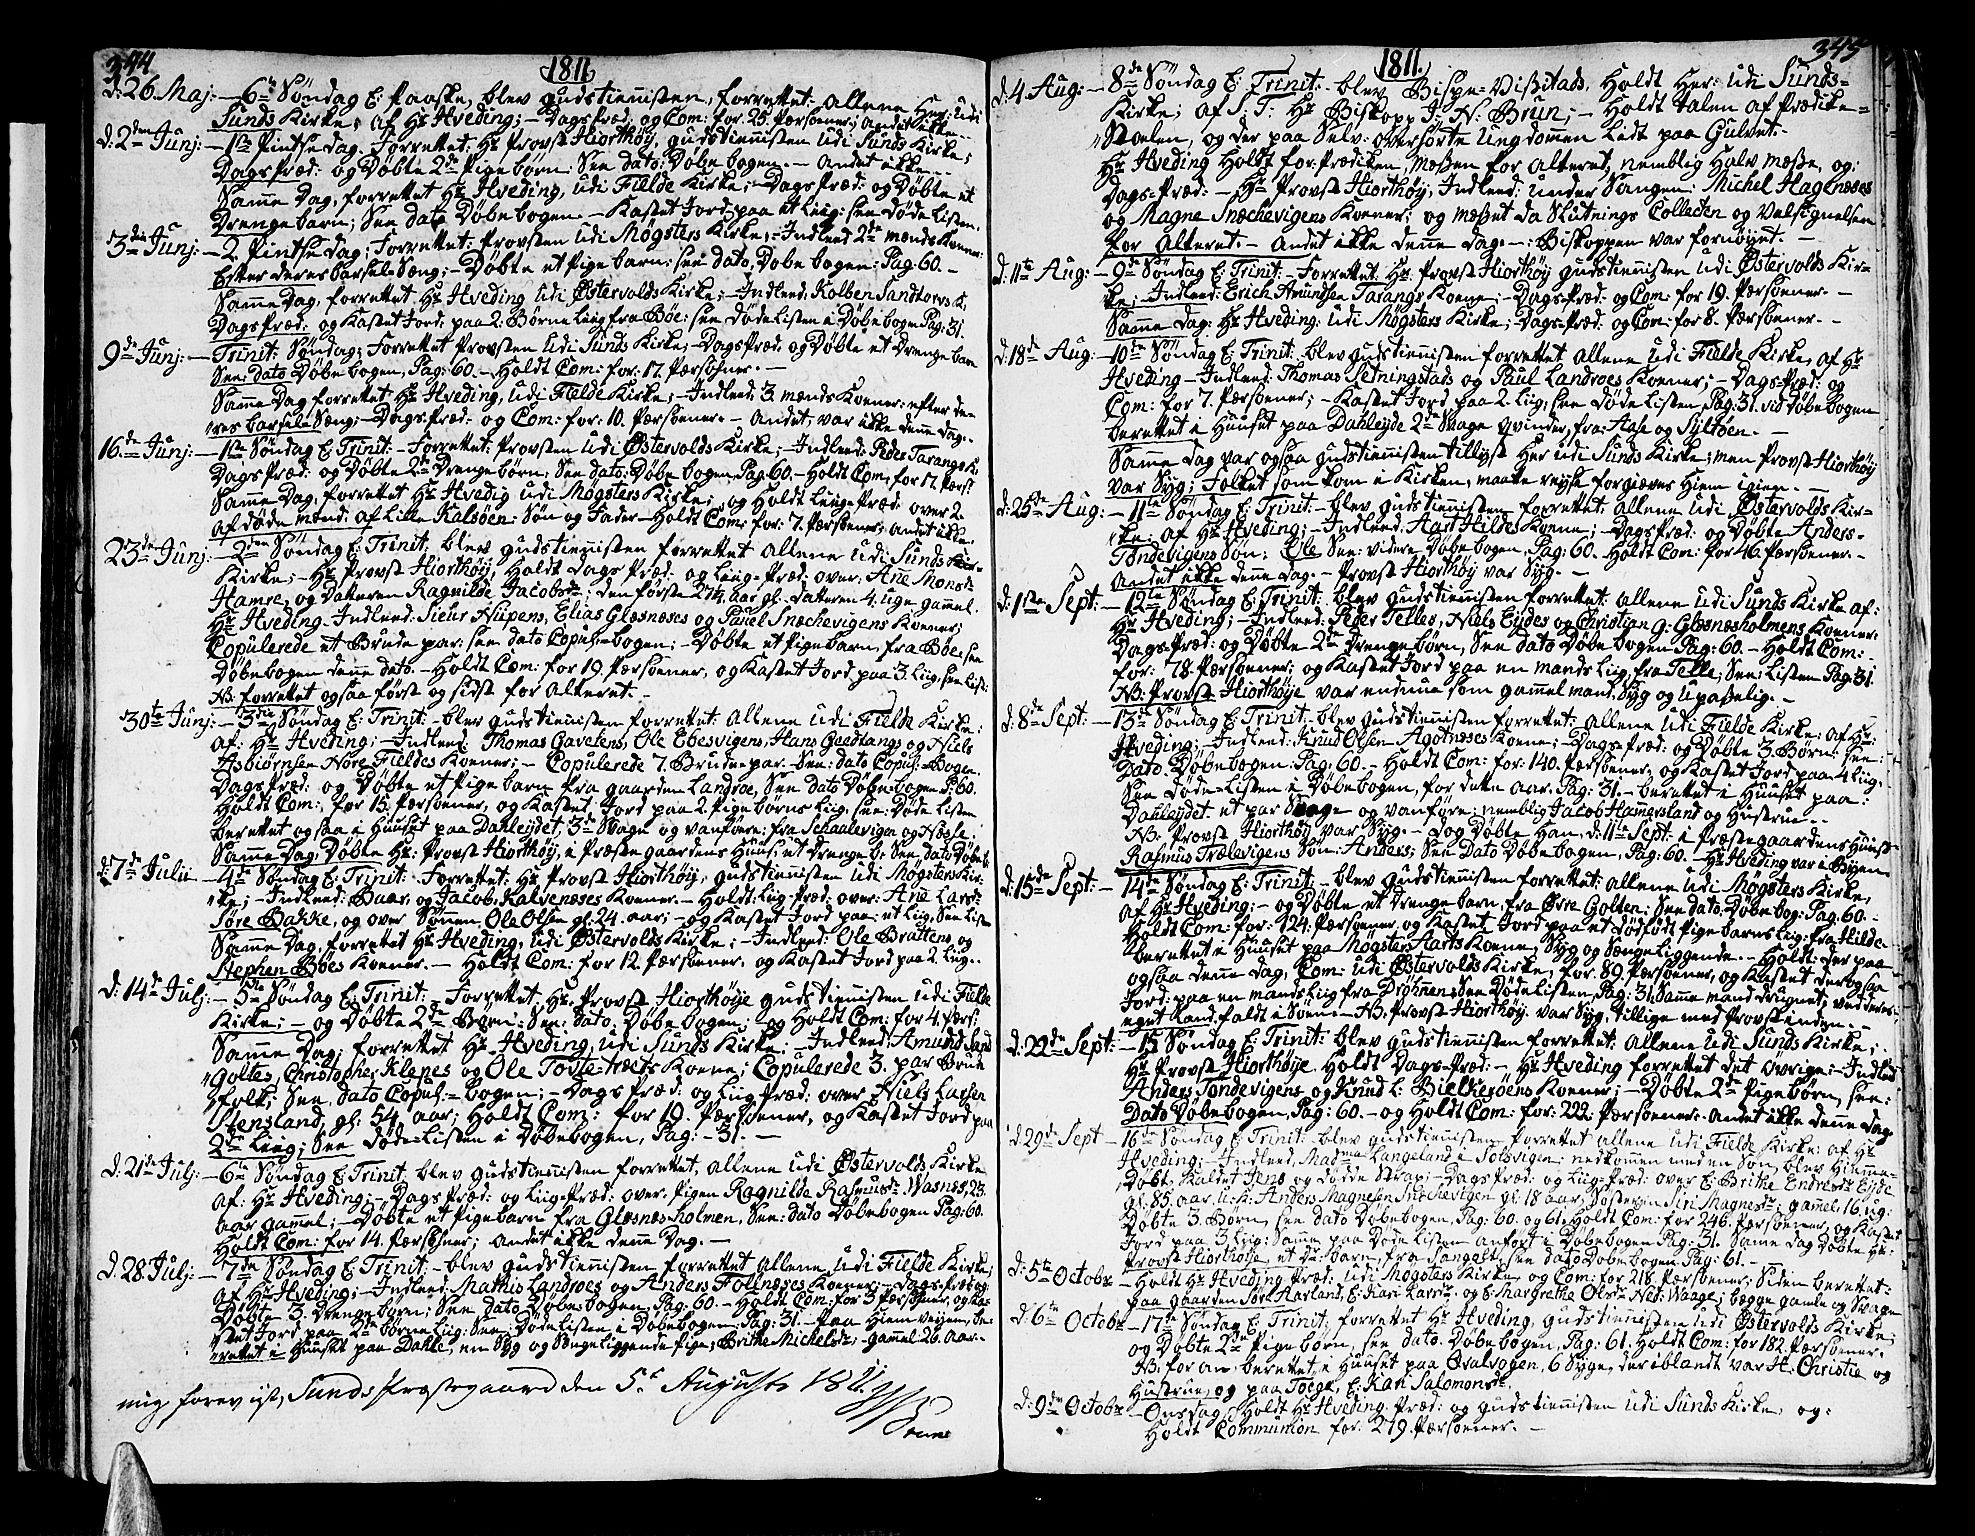 344
1811
d: 26. Maj: – 6te Søndag E: Paaske, blev Gudstienisten, forrettet allene Her udi
Sunds Kirke; af Hr Hveding; – Dags Præd: og Com: for 25. Persoener; Andet ikke.
d: 2den Junj: – 1ste Pintse Dag. Forrettet: Hr Provst Hiorthøy, gudstienisten udi Sunds Kirke;
Dags Præd: og Døbte 2de Pigebørn: See dato: Døbebogen. – Andet ikke.
Samme Dag, forrettet Hr Hveding, udi Fielde Kirke; – Dags Præd: og Døbte et
Drengebarn; See dato Døbebogen. – Kastet Jord paa et Liig: see Døde Listen.
3die Junj: – 2. Pintse Dag: Forrettet: Provsten udi Møgsters Kirke; – Indleed 2de mænds Koener:
Efter deres barsels Sæng; – Døbte et Pige barn: see dato Døbebogen: Pag: 60. –
Samme Dag, forrettet Hr Hveding udi Østervolds Kirke; – Indleed: Kolben Sandtorvs K.
Dags Præd: og Kastet Jord: paa 2. Børne Liig fra Bøe: see Døde Listen i Døbebogen Pag: 31.
9de Junj: – Trinit: Søndag; Forrettet Provsten udi Sunds Kirke; – Dags Præd: og Døbte et Drenge barn
See: dato Døbebogen, Pag: 60. – Holdt Com: for: 17. Persoener. –
Samme Dag forrettet Hr Hveding, udi Fielde Kirke; – Indleed: 3 mænds Koener: efter de-
res barsels Sæng; – Dags Præd: og Com: for: 10. Persoener. – Andet var ikke dene dag.
16de Junj: – 1ste Søndag E: Trinit: – Forrettet: Provsten udi Østervolds Kirke; – Indleed: Peder Tarangs K.
Dags Præd: og Døbte 2de Drengebørn; See dato: Døbebogen. Pag: 60. – Holdt Com, for 17. Pers:
Samme Dag. forrettet Hr Hvedig udi Møgsters Kirke; og Holdt Liig-Præd: over 2.
af døde mænd: af Lille Kalsøen: Søn og Fader – Holdt Com: for: 7. Persoener: andet ikke.
23de Junj: – 2den Søndag E: Trinit: blev gudstienisten forrettet allene udi Sunds Kir-
Kirke; – Hr Provst Hiorthøy, Holdt Dags Præd: og Liig-Præd: over: Ane Monsdr
Hamre, og Datteren Ragnilde Jacobsdr; den første 27¼ aar gl. Datteren 4. uge gammel.
Hr Hveding – Indleed: Siehr Nupens, Elias Glæsnæses og Pauel Snæchevigens Koener;
Copulerede et Brude par: see dato Copul-bogen; – Døbte et Pigebarn, fra Bøe: see
Døbebogen dene dato. – Holdt Com: for 19. Persoener, og Kastet Jord paa 3. Liig, see List:
NB: forrettet ogsaa først og sidst for Alteret. –
30te Junj: – 3die Søndag E: Trinit: – blev gudstienisten forrettet: allene udi Fielde Kirke:
af: Hr Hveding; – Indleed: Thomas Gavetens, Ole Ebesvigens, Hans Geedtangs og Niels
Asbiørnsen Nore Fieldes Koener; – Copulerede 7. Brude-par – See: dato Copul-Bogen.
Dags Præd: og Døbte et Pige barn fra gaarden Landrøe, See dato Døbe-bogen P: 60.
Holdt Com: for 15. Persoener, og Kastet Jord paa 2 Pige børns Liig, see: Døde Listen
berettet ogsaa i Huuset paa Dahleydet, 3de Svage og vanføere: fra Schaalevigen og Næse.
Samme Dag. Døbte Hr: Provst Hiorthøy, i Præste gaardens Huus, et Drenge b: See, dato Døbeb:
d: 7de Julii – 4de Søndag E: Trinit: Forrettet: Hr Provst Hiorthøy, gudstienisten udi Møgsters Kir-
ke; – Indleed: Baar, og Jacob: Kalvenæses Koener. – Holdt Liig-Præd: over: Ane Larsdr
Søre Bakke, og over Sønen Ole Olsen gl. 24. aar; – og Kastet Jord paa: et Liig. See Listen
Samme Dag, forrettet Hr Hveding, udi Østervolds Kirke; – Indleed: Ole Brattens og
Stephen Bøes Koener. – Holdt Com: for 12. Persoener, og Kastet Jord paa 2. Liig.
d: 14de Julj: – 5te Søndag E: Trinit: – Forrettet, Hr Provst Hiorthøye gudstienisten udi Fielde
Kirke; – og Døbte 2de Børn: See: dato: Døbebogen: – og Holdt Com: for 4. Pers:
Samme Dag; forrettet Hr Hveding, udi Sunds Kirke: – Indleed: Amund Sand
Goltes, Christopher Klepes og Ole Tofte-træts Koene; Copulerede 3. par Brude
folk: See dato Copul-bogen; – Dags Præd: og Liig Præd: over Niels Larsen
Stensland, gl: 54. aar; Holdt Com: for 19. Persoener, og Kastet Jord paa
2de Liig; See Døde-Listen i Døbebogen, Pag: – 31. –
d: 21de Julj: – 6te Søndag E: Trinit, blev gudstienisten forrettet, allene udi Østervolds Kirke
af: Hr Hveding; – Dags Præd: og Liig-Præd: over: Pigen Ragnilde Rasmusdr Vasnes, 23.
aar gamel; – Døbte et Pigebarn fra Glæsnæs holmen, See: dato Døbebogen Pag: 60.
Holdt Com: for 14. Persoener; andet ikke Dene Dag. –
d: 28. Julj: – 7de Søndag E: Trinit: – blev gudstienisten forrettet allene udi Fielde Kirke,
af Hr Hveding; – Indleed: Mathis Landroes og Anders Follnæses Koener; – dags-Præd: og
Døbte 3. Drengebørn: See dato Døbebogen, Pag: 60. – Holdt Com: for 3 Persoener, og Ka-
stet Jord, paa 2de børne Liig: See: Døde Listen i Døbebogen: Pag: 31. – Paa Hiemveyen, be-
rettet i Huuset paa Dahle, en Syg og Sængeliggende Pige; Brithe Michelsdr, gamel 26. aar.
mig forevist, Sunds Præstegaard den 5te Augusti 1811. JNBrun
345
1811.
d: 4. Aug: – 8de Søndag E: Trinit: – blev Bispe-Visitats, Holdt Her: udi Sunds-
Kirke; af S. T. Hr Biskopp J: N: Brun; – Holdt talen af Prædike-
Stoelen, og der paa Selv: overhørte Ungdommen Ledt paa Gulvet.
Hr Hveding Holdt for: Prædiken, Mæssen for Alteret, nemblig Halv mæsse, og:
Dags-Præd: – Hr Provst Hiorthøy, Indleed: under Sangen: Michel Haglenæses
og Magne Snæchevigens Koener; og mæsset da Slutnings Collecten og Velsignelsen
for Alteret. – Andet ikke Dene dag. – : Biskoppen var fornøyet. –
d: 11te Aug: – 9de Søndag E: Trinit: – Forrettet: Hr Provst Hiorthøy gudstienisten udi Østervolds Kir-
ke; – Indleed: Erich Amundsen Tarangs Koene; – Dags-Præd: og Com: for 19. Persoener. –
Samme Dag: Hr Hveding: udi Møgsters Kirke; Dags-Præd: og Com: for 8. Persoener. –
d: 18de Aug: – 10de Søndag E: Trinit: blev gudstienisten forrettet allene udi Fielde Kirke, af Hr
Hveding – Indleed: Thomas Setningstads og Paul Landroes Koener; – Dags Præd: og
Com: for 7. Persoener; – Kastet Jord paa 2. Liig, see Døde Listen, Pag: 31. vid Døbebogen
berettet i Huuset paa Dahleyde 2de Svage qvinder, fra: Aase og Syltøen. –
Samme Dag var ogsaa gudstienisten tillyst Her udi Sunds Kirke; men Provst Hiorthøy
var Syg; Folket som kom i Kirken, maate reyse forgæves Hiem igien. –
d: 25de Aug: – 11te Søndag E: Trinit: – blev gudstienisten forrettet: allene udi Østervolds Kir-
ke; af Hr Hveding; – Indleed: Aart Hildes Koene; – Dags Præd: og Døbte Anders-
Tøndevigens Søn: Ole See: videre Døbebogen, Pag: 60. – Holdt Com: for 46. Persoener. –
Andet ikke dene dag. – Provst Hiorthøy var Syg. –
d: 1ste Sept: – 12te Søndag E: Trinit: blev gudstienisten forrettet: allene udi Sunds Kirke af:
Hr Hveding; – Indleed: Peder Telles, Niels Eydes og Christian G: Glæsnæsholmens Koener:
Dags-Præd: og Døbte – 2de Drengebørn, See dato Døbebogen Pag: 60. – Holdt Com:
for: 78. Persoener; og Kastet Jord paa en mands Liig, fra Telle; See: Listen Pag: 31.
NB: Provst Hiorthøye var endnua som gammel mand, Syg og Upasselig. –
d: 8de Sept: – 13de Søndag E: Trinit: – blev gudstienisten forrettet: allene udi Fielde Kirke: af Hr:
Hveding: – Indleed: Knud Olsen – Agotnæses Koene; – Dags-Præd: og Døbte 3. Børn: see:
Dato: Døbebogen: Pag: 60. – Holdt Com: for: 140. Persoener, og Kastet Jord paa 4 Liig.
See Døde-Listen i Døbebogen, for dette aar. Pag: 31. – berettet i Huuset paa:
Dahleydet, et par Svage og vanføre: nemblig Jacob Hamersland og Hustrue. –
NB: Provst Hiorthøy var Syg. – Dog Døbte Han, d: 11te Sept: i Præstegaardens Huus
Rasmus Trælevigens Søn: Anders; See Dato Døbebogen, Pag: 60. – Hr Hveding var i Byen
d: 15de Sept: – 14de Søndag E: Trinit: – blev gudstienisten forrettet: allene udi Møgsters Kirke,
af Hr Hveding; – og Døbte et Drengebarn, fra Øvre Golten: See dato. Døbebog: Pag: 60. –
Holdt Com: for: 124. Persoener, og Kastet Jord paa et Dødfødt Pigebarns Liig: fra Hilde –
berettet i Huuset paa Møgster: Aarts Koene, Syg og Sængeliggende. – Holdt: der paa
ogsaa dene Dag, Com: udi Østervolds Kirke, for 89. Persoener, og Kastet der ogsaa
Jord: paa en mands Liig fra Drønen: See Døde Listen, Pag: 31. Samme mand drugnet, ved deres
eget Land. faldt i Søene. – NB: Provst Hiorthøy. var Syg, tillige med Provstinden. –
d: 22de Sept: – 15 Søndag E: Trinit: blev gudstienisten forrettet: allene udi Sunds Kirke;
Hr Provst Hiorthøye. Holdt Dags-Præd: – Hr Hveding forrettet det Øvrige; – Indleed
Anders Tøndevigens og Knud L: Bielkerøens Koener; – Døbte 2de Pigebørn, see:
Dato Døbebogen, Pag: 60. – og Holdt Com: for: 222. Persoener: – andet ikke denne dag
d: 29de Sept – 16de Søndag E: Trinit: blev gudstienisten forrettet allene udi Fielde Kirke: af Hr
Hveding; – Indleed, Madme Langeland i Solsvigen; nedkommen med en Søn, blev Hieme-
Døbt. Kaldet Jens og Dødde Strax; – Dags-Præd: og Liig-Præd: over E: Brithe Endresdr Eyde
gl: 85. aar. U: K: Anders Magnesen Snæchevigen gl. 18 aar, Søsteren Siri Magnesdr, gamel, 16. ug:
Døbte 3. Børn, see dato Døbebogen, Pag: 60. og 61. Holdt Com: for 246. Persoener, og Kastet
Jord paa 3. Liig: Samme paa Døde Listen anført i Døbebogen Pag: 31. Same dag Døbte Hr:
Provst Hiorthøye, et Dr: barn, fra Sangelt, See dato Døbebogen Pag: 61. –
d: 5te Octobr – Holdt Hr Hveding Præd: udi Møgsters Kirke, og Com: for 218. Persoener; Siden berettet
paa gaarden Søre Aarland, E: Kari Larsdr og E: Margrethe Olsdr Ned: Waage; begge gamle og Svage
d: 6te Octobr – 17de Søndag E: Trinit; forrettet Hr Hveding, gudstienisten udi Østervolds Kirke;
og Døbte 2de Pigebørn, see dato. Døbebogen, Pag: 61. Holdt Com: for 182. Persoener.
NB: for an: berettet, i Huuset paa Qvalvogen, 6 Syge, deriblandt var H. Christie og
Hustrue, og paa Toege, E: Kari Salomonsdr.
d: 9de Octobr – Onsdag; Holdt Hr Hveding Præd: og gudstienisten udi Sunds Kirke, og:
Holdt Communion for: 279. Persoener. –